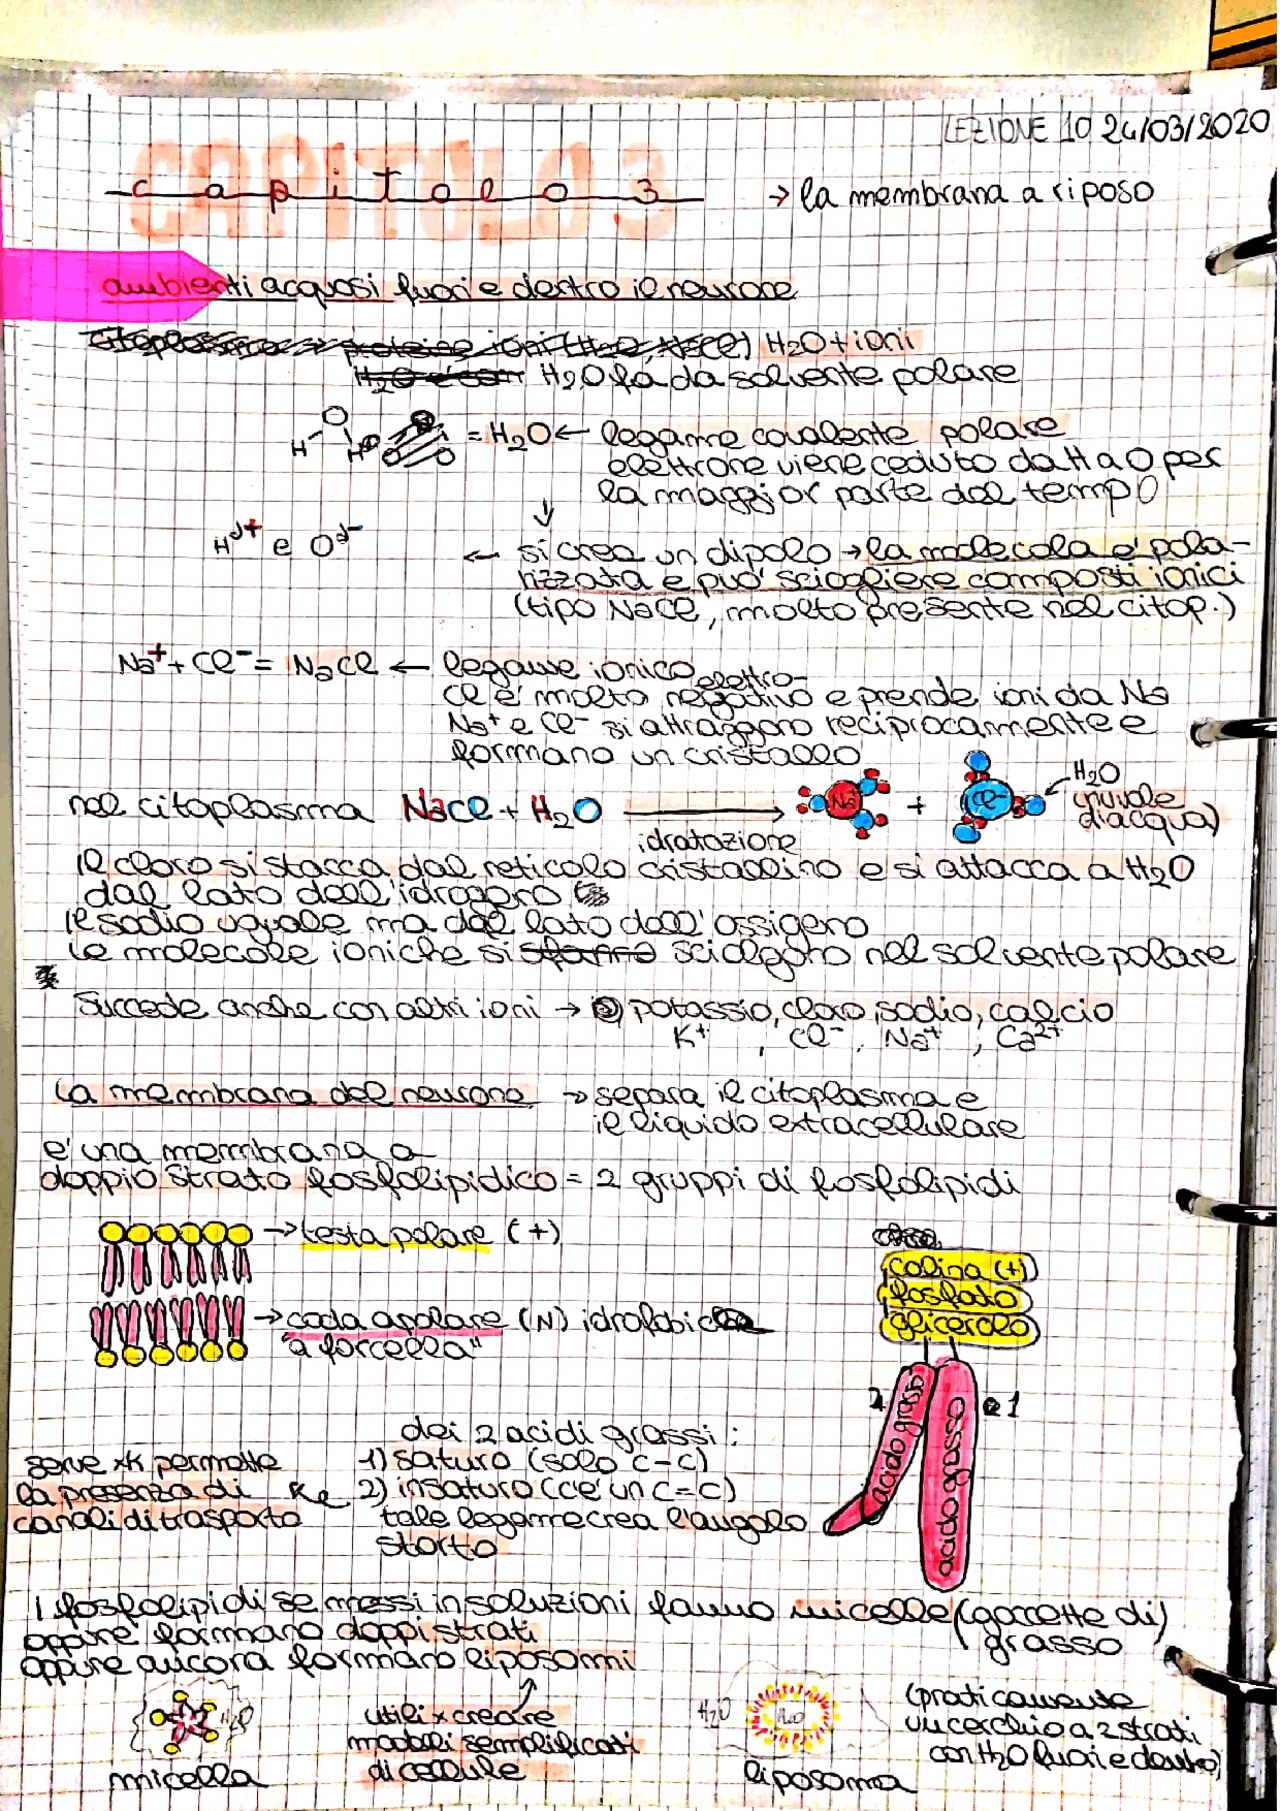 LEZIONE 10 24/03/2020
CAPITOLO 3
capitolo 3 → la membrana a riposo
ambienti acquosi fuori e dentro il neurone
citoplasma → proteine ioni (H2O, NaCl) H2O + ioni
H2O è con H2O fa da solvente polare
O
H H = H2O ← legame covalente polare
elettrone viene ceduto da H a O per
la maggior parte del tempo
↓
Hδ+ e Oδ- ← si crea un dipolo → la molecola e' pola-
rizzata e puo' sciogliere composti ionici
(tipo NaCl, molto presente nel citop.)
Na+ + Cl- = NaCl ← legame ionico
elettro-
Cl e' molto negativo e prende ioni da Na
Na+ e Cl- si attraggono reciprocamente e
formano un cristallo
nel citoplasma NaCl + H2O → Na+ + Cl- ← H2O
idratazione
(nuvole
d'acqua)
il cloro si stacca dal reticolo cristallino e si attacca a H2O
dal lato dell'idrogeno
il sodio uguale ma dal lato dell'ossigeno
le molecole ioniche si sciolgono nel solvente polare
Succede anche con altri ioni → potassio, cloro, sodio, calcio
K+, Cl-, Na+, Ca2+
la membrana del neurone → separa il citoplasma e
il liquido extracellulare
e' una membrana a
doppio strato fosfolipidico = 2 gruppi di fosfolipidi
→ testa polare (+)
→ coda apolare (N) idrofobica
"a forcella"
colina (+)
fosfato
glicerolo
2 acido grasso
acido grasso 1
dei 2 acidi grassi:
1) saturo (solo C-C)
2) insaturo (c'e' un C=C)
tale legame crea l'angolo
storto
serve xk permette
la presenza di
canali di trasporto
I fosfolipidi se messi in soluzioni fanno micelle (goccette di)
grasso
oppure formano doppi strati
oppure ancora formano liposomi
H2O
micella
utili x creare
modelli semplificati
di cellule
H2O
H2O
liposoma
(praticamente
un cerchio a 2 strati
con H2O fuori e dentro)